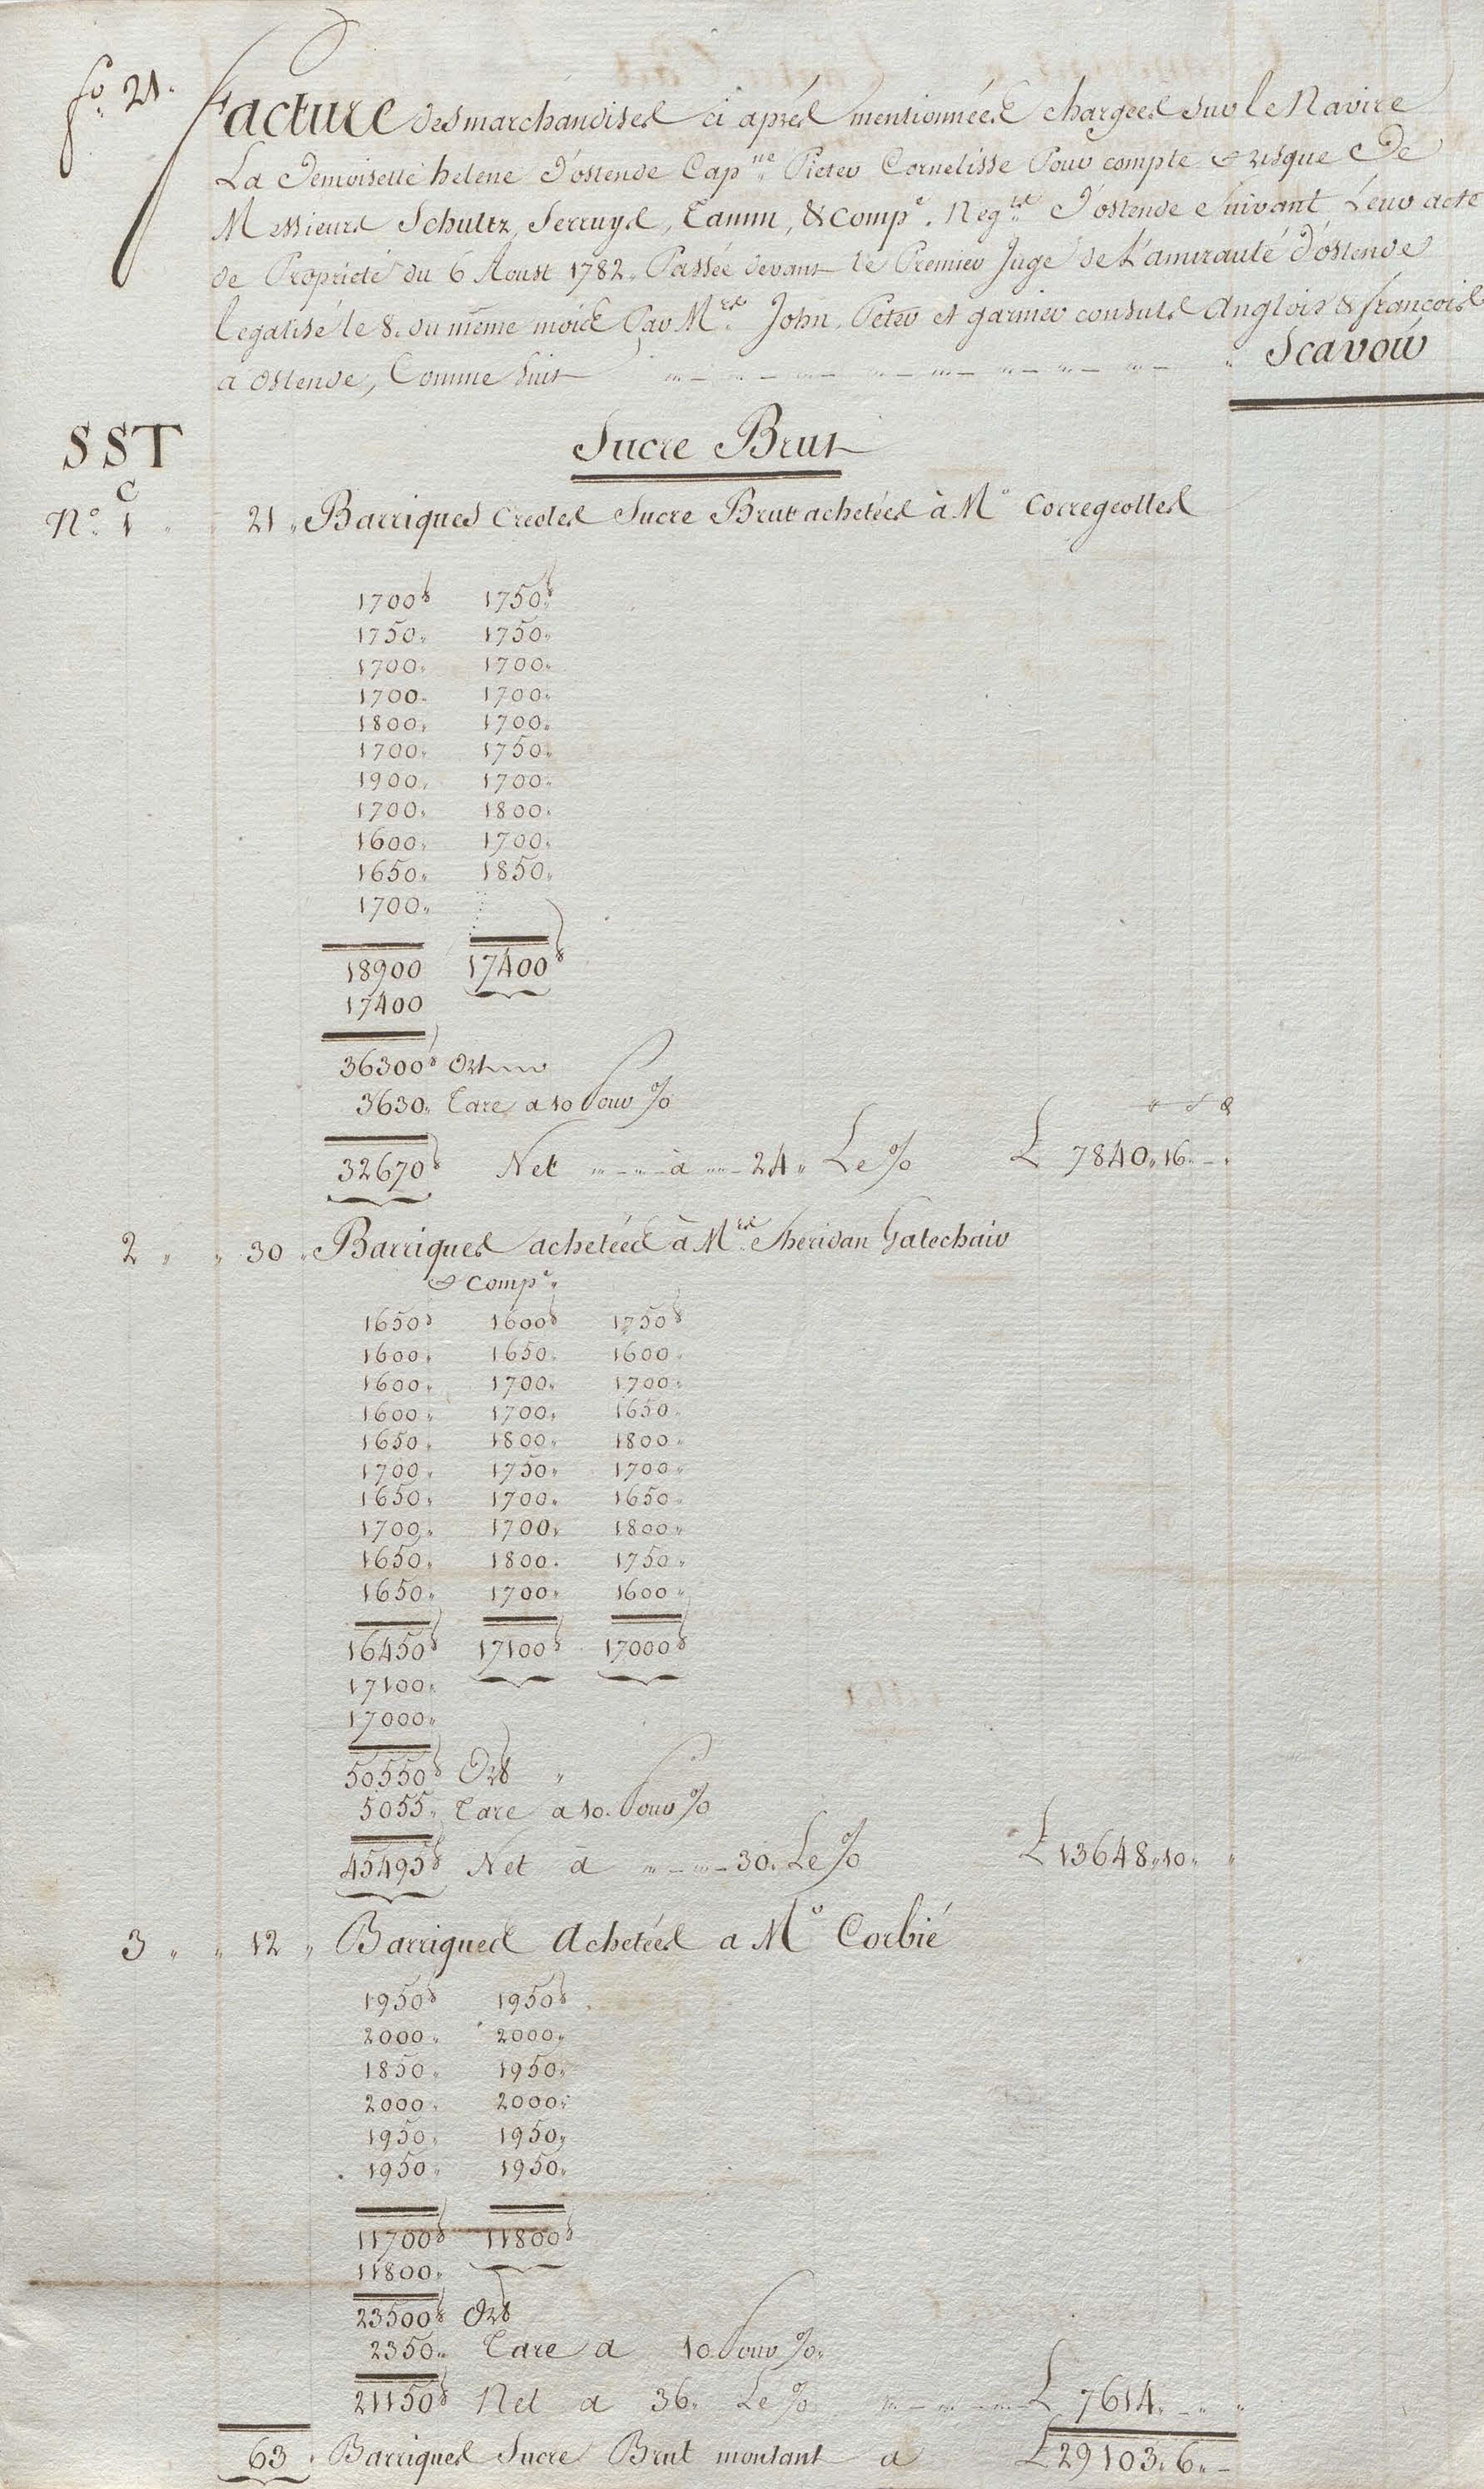 fo. 21.
Facture des marchandises ci aprés mentionnées chargées sur le Navire
La Demoiselle helene d'ostende Capne Pieter Cornelisse Pour compte & risque De
Messieurs Schultz, Serruys, Tamm, & Compe. Negts D'ostende Suivant Leur acte
de Proprieté du 6 Aoust 1782. Passée devant le Premier Juge de L'amirauté d'ostende
legalisé le 8. du même mois Par Mrs. John. Peter et garnier consuls Anglois & françois
a ostende, Comme suit Scavoir
SST
Sucre Brut
C
No. 1 " 21 " Barriques Creoles Sucre Brut achetées à Mr Corregeolles
1700 1750
1750 " 1750 "
1700 " 1700 "
1700 " 1700 "
1800 " 1700 "
1700 " 1750 "
1900 " 1700 "
1700 " 1800 "
1600 " 1700 "
1650 " 1850 "
1700 "
18900 17400
17400
36300 Ort
3630 " Tare a 10 Pour %
32670 Net à 24 " Le % £ 7840 " 16 " -
2 " " 30 " Barriques achetées à Mrs. Sheridan Gatechair
& Compe "
1650 1600 1750
1600 " 1650 " 1600 "
1600 " 1700 " 1700 "
1600 " 1700 " 1650 "
1650 " 1800 " 1800 "
1700 " 1750 " 1700 "
1650 " 1700 " 1650 "
1700 " 1700 " 1800 "
1650 " 1800 " 1750 "
1650 " 1700 " 1600 "
16450 17100 17000
17100 "
17000 "
50550 Ort "
5055 " Tare a 10. Pour %
45495 Net à 30. Le % £ 13648 " 10 " "
3 " " 12 " Barriques Achetées a Mr Corbié
1950 1950
2000 " 2000 "
1850 " 1950 "
2000 " 2000 "
1950 " 1950 "
1950 " 1950 "
11700 11800
11800 "
23500 Ort
2350 " Tare a 10 Pour % "
21150 Net a 36 " Le % £ 7614 " - "
63 " Barriques Sucre Brut montant a £ 29103 " 6 " -